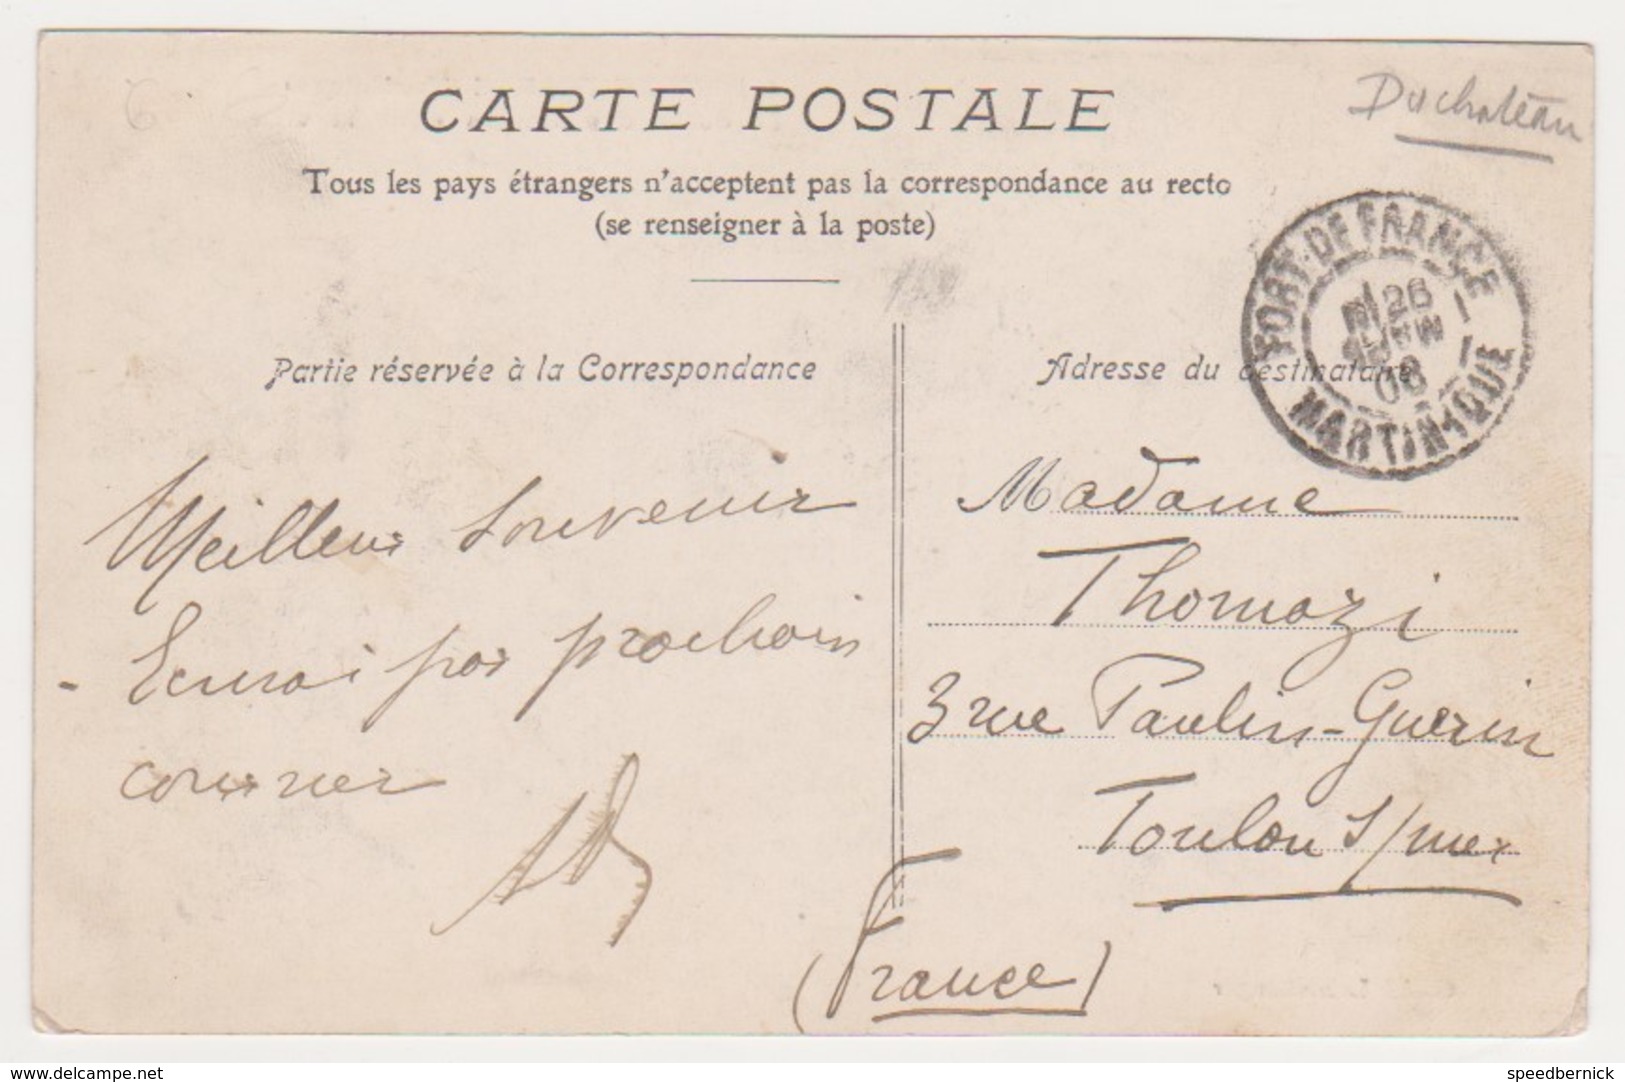 Duchateau
CARTE POSTALE
Tous les pays étrangers n'acceptent pas la correspondance au recto
(se renseigner à la poste)
FORT-DE-FRANCE
26
06
MARTINIQUE
Partie réservée à la Correspondance
Adresse du destinataire
Meilleur souvenir
- Ecrirai par prochain
courrier
Madame
Thomazi
3 rue Paulin-Guerin
Toulon s/mer
(France)
delcampe.net
speedbernick